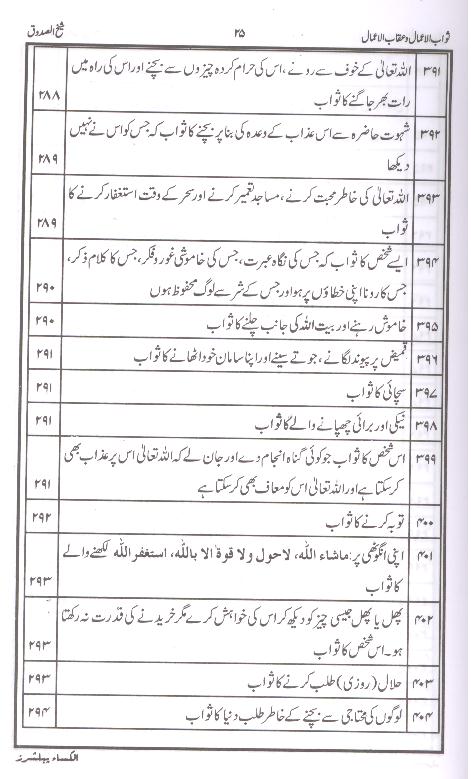 ثواب الاعمال و عقاب الاعمال ۲۵ شیخ الصدوق
۳۹۱ اللہ تعالیٰ کے خوف سے رونے، اس کی حرام کردہ چیزوں سے بچنے اور اس کی راہ میں
رات بھر جاگنے کا ثواب ۲۸۸
۳۹۲ شہوت حاضرہ سے اس عذاب کے وعدہ کی بنا پر بچنے کا ثواب کہ جس کو اس نے نہیں
دیکھا ۲۸۹
۳۹۳ اللہ تعالیٰ کی خاطر محبت کرنے، مساجد تعمیر کرنے اور سحر کے وقت استغفار کرنے کا
ثواب ۲۸۹
۳۹۴ ایسے شخص کا ثواب کہ جس کی نگاہ عبرت، جس کی خاموشی غور و فکر، جس کا کلام ذکر،
جس کا رونا اپنی خطاؤں پر ہو اور جس کے شر سے لوگ محفوظ ہوں ۲۹۰
۳۹۵ خاموش رہنے اور بیت اللہ کی جانب چلنے کا ثواب ۲۹۰
۳۹۶ قمیض پر پیوند لگانے، جوتے سینے اور اپنا سامان خود اٹھانے کا ثواب ۲۹۱
۳۹۷ سچائی کا ثواب ۲۹۱
۳۹۸ نیکی اور برائی چھپانے والے کا ثواب ۲۹۱
۳۹۹ اس شخص کا ثواب جو کوئی گناہ انجام دے اور جان لے کہ اللہ تعالیٰ اس پر عذاب بھی
کر سکتا ہے اور اللہ تعالیٰ اس کو معاف بھی کر سکتا ہے ۲۹۱
۴۰۰ توبہ کرنے کا ثواب ۲۹۲
۴۰۱ اپنی انگوٹھی پر: ماشاء اللہ، لاحول ولا قوة الا باللہ، استغفر اللہ لکھنے والے
کا ثواب ۲۹۳
۴۰۲ پھل یا پھل جیسی چیز کو دیکھ کر اس کی خواہش کرے مگر خریدنے کی قدرت نہ رکھتا
ہو۔ اس شخص کا ثواب ۲۹۳
۴۰۳ حلال (روزی) طلب کرنے کا ثواب ۲۹۳
۴۰۴ لوگوں کی محتاجی سے بچنے کے خاطر طلب دنیا کا ثواب ۲۹۴
الکساء پبلشرز